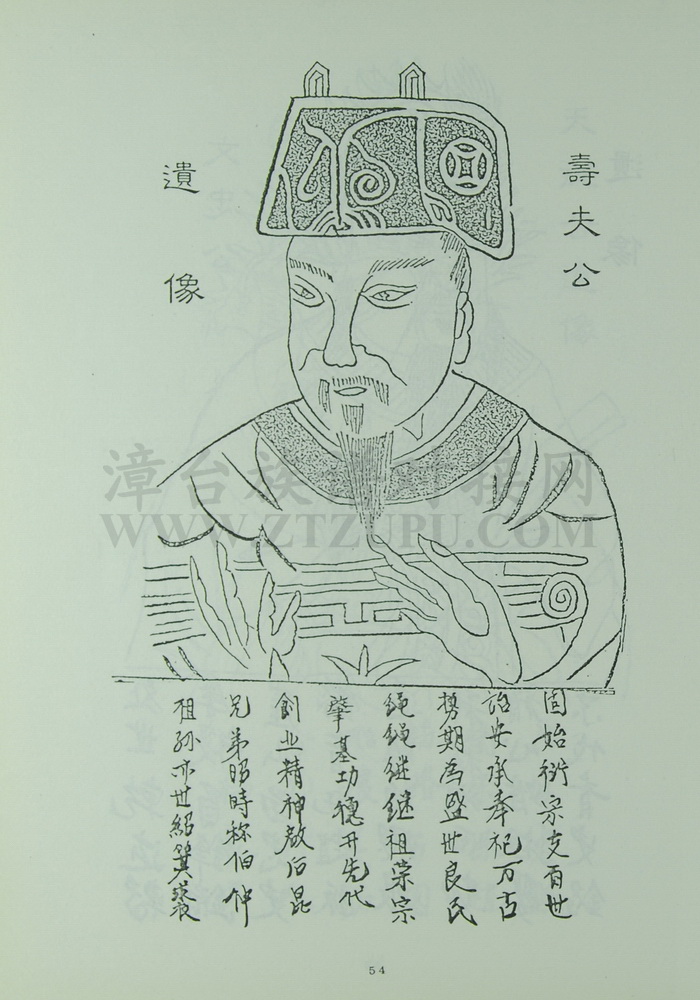 壽夫公
遺像
漳台族谱对接网
WWW.ZTZUPU.COM
固始衍宗支百世
詒安承奉祀万古
期為盛世良民
绳绳继继祖荣宗
肇基功德开先代
創业精神啟后昆
兄弟昭時称伯仲
祖孙亦世紹箕裘
54